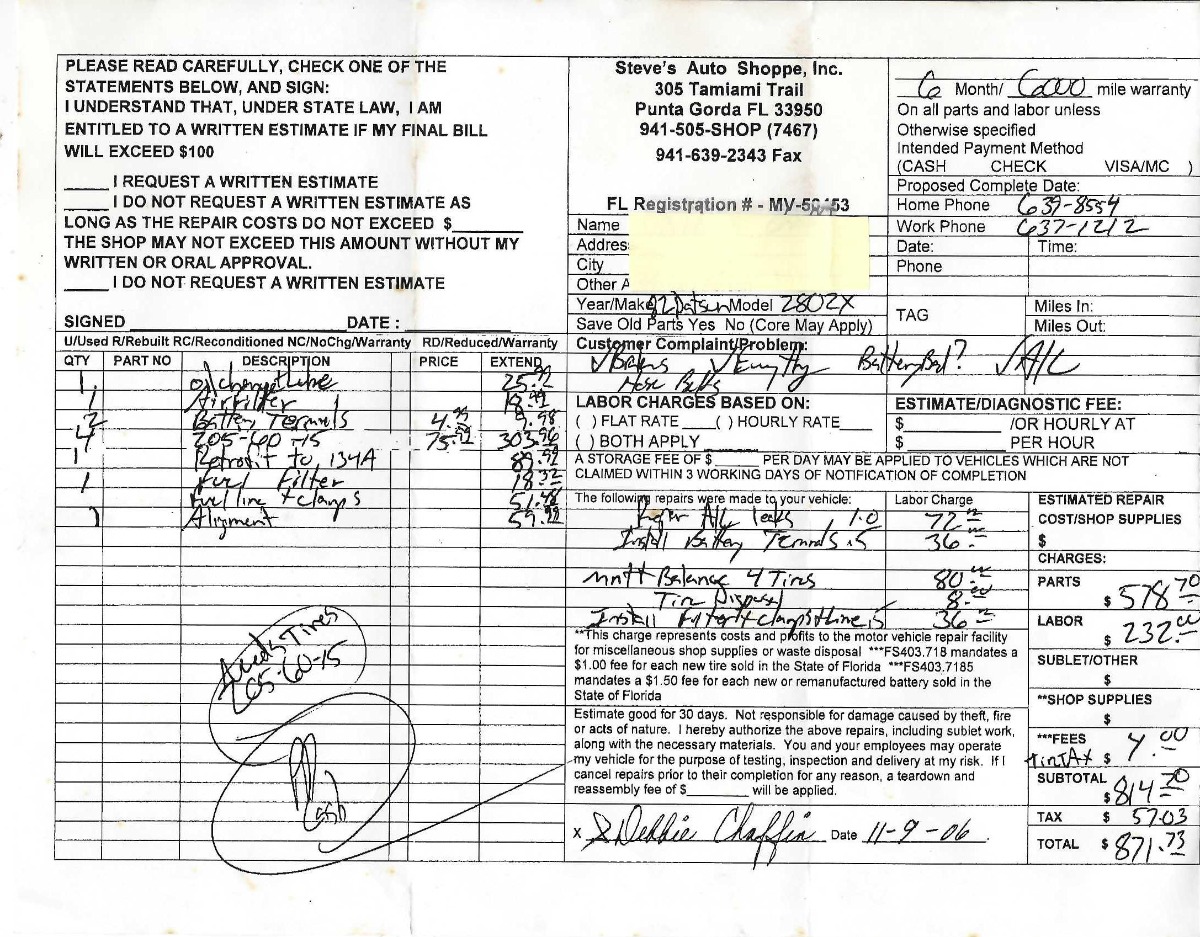 PLEASE READ CAREFULLY, CHECK ONE OF THE
STATEMENTS BELOW, AND SIGN:
I UNDERSTAND THAT, UNDER STATE LAW, I AM
ENTITLED TO A WRITTEN ESTIMATE IF MY FINAL BILL
WILL EXCEED $100
_____ I REQUEST A WRITTEN ESTIMATE
_____ I DO NOT REQUEST A WRITTEN ESTIMATE AS
LONG AS THE REPAIR COSTS DO NOT EXCEED $________
THE SHOP MAY NOT EXCEED THIS AMOUNT WITHOUT MY
WRITTEN OR ORAL APPROVAL.
_____ I DO NOT REQUEST A WRITTEN ESTIMATE
SIGNED ________________ DATE : ____________
Steve's Auto Shoppe, Inc.
305 Tamiami Trail
Punta Gorda FL 33950
941-505-SHOP (7467)
941-639-2343 Fax
FL Registration # - MV-
Name
Addres
City
Other A
Year/Make 82 Datsun Model 280ZX
Save Old Parts Yes No (Core May Apply)
6 Month/ 6000 mile warranty
On all parts and labor unless
Otherwise specified
Intended Payment Method
(CASH CHECK VISA/MC )
Proposed Complete Date:
Home Phone 639-8554
Work Phone 637-1212
Date: Time:
Phone
TAG
Miles In:
Miles Out:
U/Used R/Rebuilt RC/Reconditioned NC/NoChg/Warranty RD/Reduced/Warranty
QTY PART NO DESCRIPTION PRICE EXTEND
1 oil change + Lube 25.92
1 Air Filter 18.99
2 Battery Terminals 4.99 9.98
4 205-60-15 75.99 303.96
1 Retrofit to 134A 89.99
1 Fuel Filter 18.32
Fuel line + clamps 51.48
1 Alignment 59.99
Needs Tires
205-60-15
Cash
Customer Complaint/Problem:
Battery Bad? ✓ A/C
LABOR CHARGES BASED ON:
( ) FLAT RATE ____( ) HOURLY RATE____
( ) BOTH APPLY ______
ESTIMATE/DIAGNOSTIC FEE:
$____________ /OR HOURLY AT
$____________ PER HOUR
A STORAGE FEE OF $_______ PER DAY MAY BE APPLIED TO VEHICLES WHICH ARE NOT
CLAIMED WITHIN 3 WORKING DAYS OF NOTIFICATION OF COMPLETION
The following repairs were made to your vehicle: Labor Charge
Repair A/C leaks 1.0 72.00
Install Battery Terminals .5 36.
Mnt + Balance 4 Tires 80.00
Tire Disposal 8.00
Install Filter + clamps + line .5 36
**This charge represents costs and profits to the motor vehicle repair facility
for miscellaneous shop supplies or waste disposal ***FS403.718 mandates a
$1.00 fee for each new tire sold in the State of Florida ***FS403.7185
mandates a $1.50 fee for each new or remanufactured battery sold in the
State of Florida
Estimate good for 30 days. Not responsible for damage caused by theft, fire
or acts of nature. I hereby authorize the above repairs, including sublet work,
along with the necessary materials. You and your employees may operate
my vehicle for the purpose of testing, inspection and delivery at my risk. If I
cancel repairs prior to their completion for any reason, a teardown and
reassembly fee of $________ will be applied.
X Debbie Chaffin Date 11-9-06
ESTIMATED REPAIR
COST/SHOP SUPPLIES
$
CHARGES:
PARTS $ 578.70
LABOR $ 232.00
SUBLET/OTHER
$
**SHOP SUPPLIES
$
***FEES
Tire TAX $ 4.00
SUBTOTAL $ 814.70
TAX $ 57.03
TOTAL $ 871.73